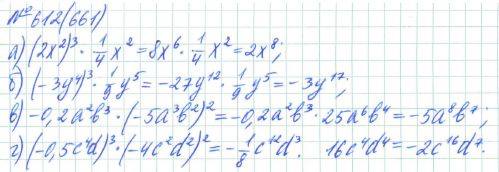 №612(661)
а) (2x²)³ · 1/4 x² = 8x⁶ · 1/4 x² = 2x⁸;
б) (-3y⁴)³ · 1/9 y⁵ = -27y¹² · 1/9 y⁵ = -3y¹⁷;
в) -0,2a²b³ · (-5a³b²)² = -0,2a²b³ · 25a⁶b⁴ = -5a⁸b⁷;
г) (-0,5c⁴d)³ · (-4c²d²)² = -1/8 c¹²d³. 16c⁴d⁴ = -2c¹⁶d⁷.